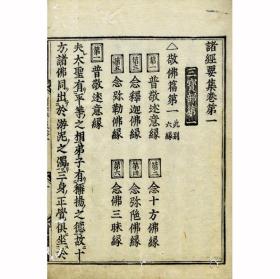 諸經要集卷第一
三寶部第一
△敬佛篇第一 此別六緣
第一 普敬述意緣 第二 念十方佛緣
第三 念釋迦佛緣 第四 念彌陀佛緣
第五 念彌勒佛緣 第六 念佛三昧緣
第一 普敬述意緣
夫大聖有平等之相弟子有稱揚之德故十
方諸佛同出於淤泥之濁三身正覺俱坐於